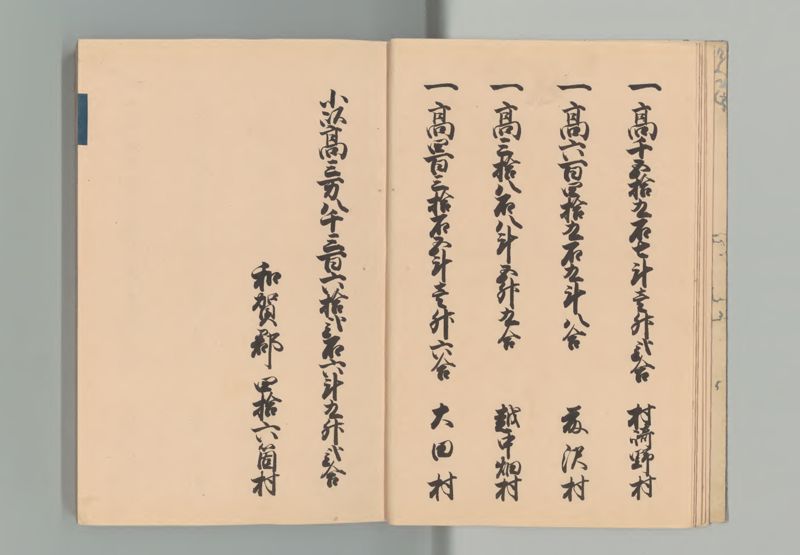 一高千五拾九石七斗壱升弐合 村崎野村
一高六百四拾九石九斗八合 沢村
一高三拾八石八斗五升九合 越中畑村
一高四百三拾石五斗壱升六合 大田村
小以高三万八千三百六拾弐石六斗九升弐合
和賀郡 四拾六箇村